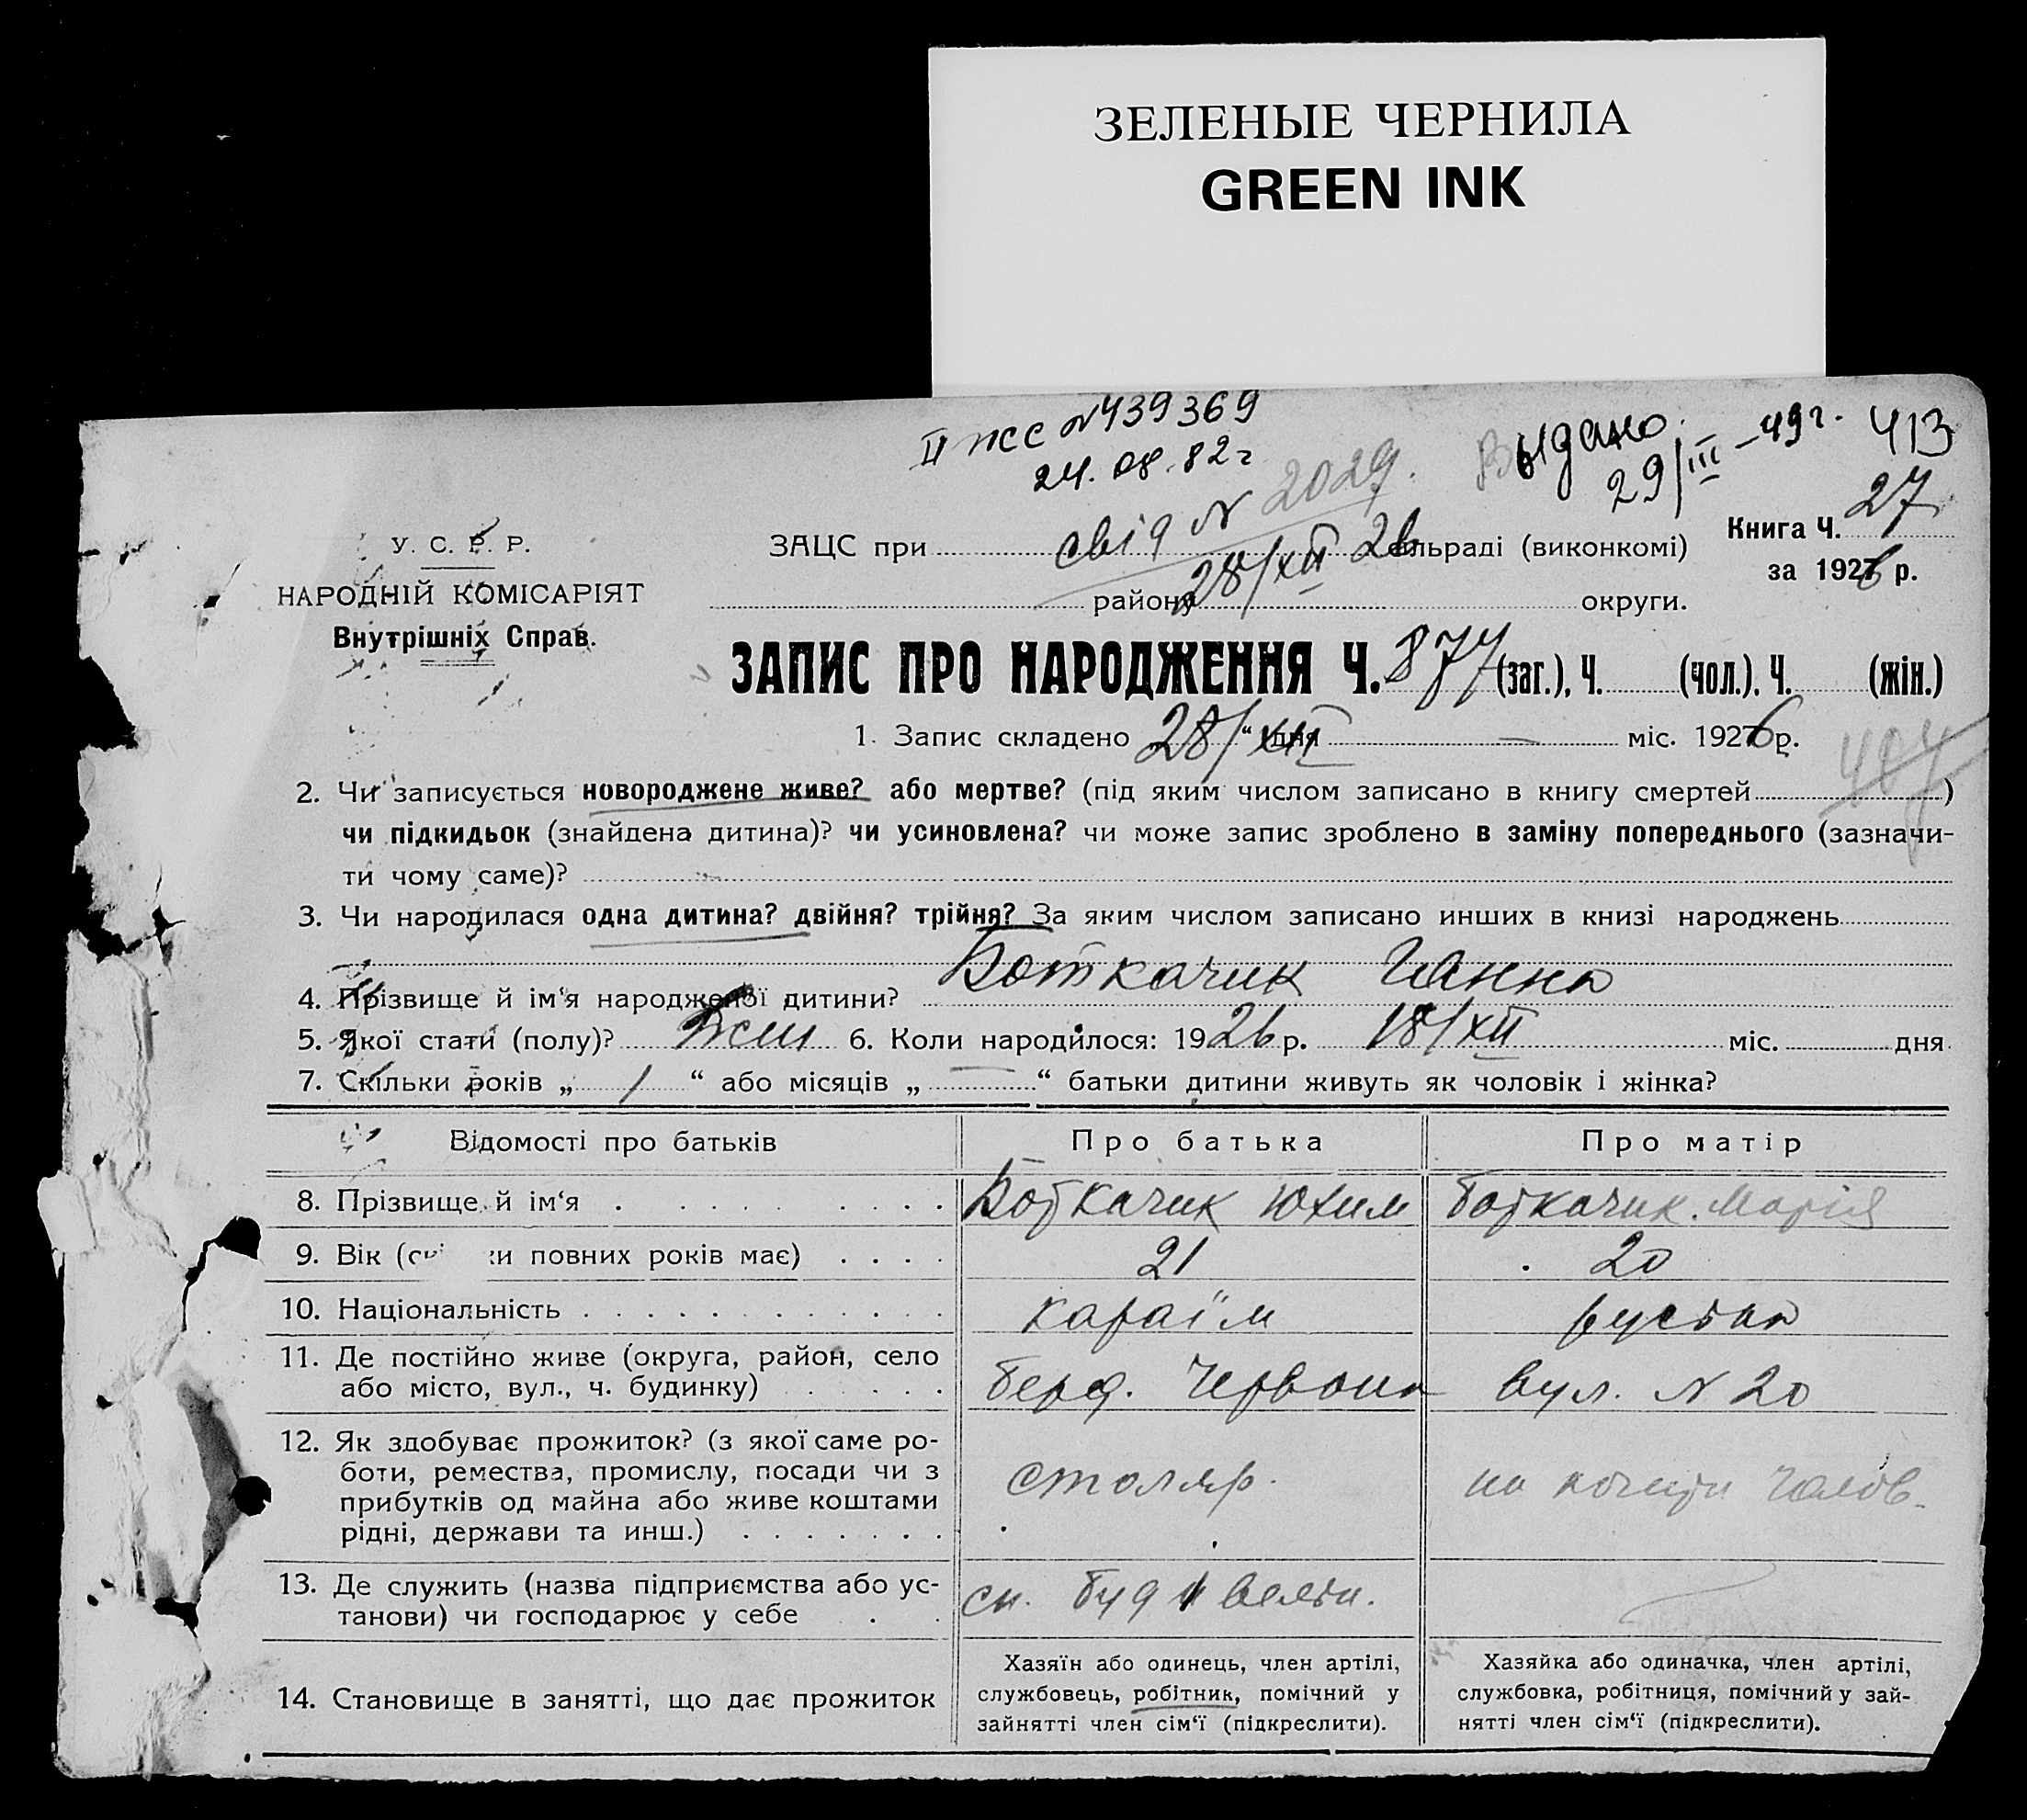 ЗЕЛЕНЫЕ ЧЕРНИЛА
GREEN INK
II жсс №439369
24.08.82г
Выдано
29/III-49г.
413
свід N 2029.
28/XII 26
У. С. Р. Р.
НАРОДНІЙ КОМІСАРІЯТ
Внутрішніх Справ.
ЗАЦС при сільраді (виконкомі)
Книга Ч. 27
за 1926 р.
району округи.
ЗАПИС ПРО НАРОДЖЕННЯ Ч. 877 (заг.), Ч. (чол.). Ч. (жін.)
1. Запис складено 28/XII “ дня — міс. 1926 р.
407
2. Чи записується новороджене живе? або мертве? (під яким числом записано в книгу смертей )
чи підкидьок (знайдена дитина)? чи усиновлена? чи може запис зроблено в заміну попереднього (зазначи-
ти чому саме)?
3. Чи народилася одна дитина? двійня? трійня? За яким числом записано инших в книзі народжень
4. Прізвище й ім‘я народженої дитини? Боткачик Ганна
5. Якої статі (полу)? жін 6. Коли народилося: 1926 р. 18/XII міс. дня
7. Скільки років „ 1 “ або місяців „ — “ батьки дитини живуть як чоловік і жінка?
Відомості про батьків Про батька Про матір
8. Прізвище й ім‘я Боткачик Юхим Боткачик. Марія
9. Вік (скі ки повних років має) 21 20
10. Національність караїм руська
11. Де постійно живе (округа, район, село
або місто, вул., ч. будинку) Берд. Червона вул. N 20
12. Як здобуває прожиток? (з якої саме ро-
боти, ремества, промислу, посади чи з
прибутків од майна або живе коштами
рідні, держави та инш.)
столяр. на кошти чолов.
13. Де служить (назва підприємства або ус-
танови) чи господарює у себе
14. Становище в занятті, що дає прожиток
Хазяїн або одинець, член артілі,
службовець, робітник, помічний у
зайнятті член сім‘ї (підкреслити).
Хазяйка або одиначка, член артілі,
службовка, робітниця, помічний у зай-
нятті член сім‘ї (підкреслити).